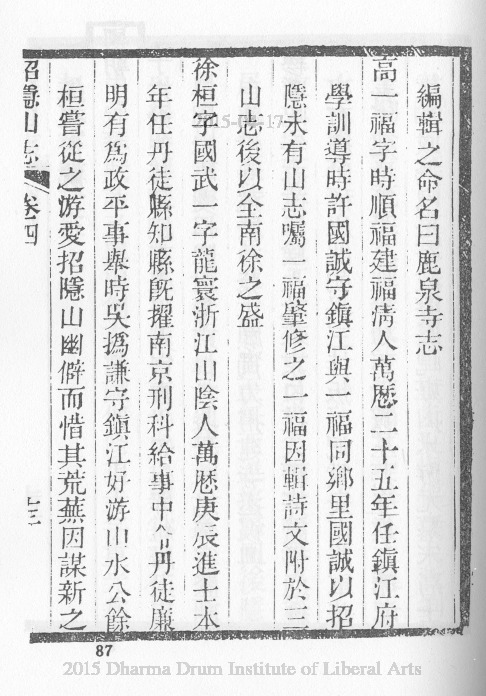 編輯之命名曰鹿泉寺志
高一福字時順福建福淸人萬歷二十五年任鎭江府
學訓導時許國誠守鎭江與一福同鄉里國誠以招
隱未有山志囑一福肇修之一福因輯詩文附於三
山志後以全南徐之盛
徐桓字國武一字龍寰浙江山陰人萬歷庚辰進士本
年任丹徒縣知縣旣擢南京刑科給事中令丹徒廉
明有爲政平事舉時吳撝謙守鎭江好游山水公餘
桓嘗從之游愛招隱山幽僻而惜其荒蕪因謀新之
招隱山志
卷四
十三
87
2015 Dharma Drum Institute of Liberal Arts